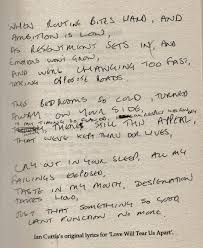 WHEN ROUTINE BITES HARD, AND
AMBITION IS LOW,
AS RESENTMENT SETS IN, AND
EMOTIONS WONT GROW,
AND WERE CHANGING TOO FAST,
TAKING OPPOSITE ROADS
THIS BEDROOMS SO COLD, TURNED
AWAY ON YOUR SIDE,
IS MY TIMING
THERES STILL THIS APPEAL,
THAT WEVE KEPT THRU OUR LIVES,
CRY OUT IN YOUR SLEEP, ALL MY
FAILINGS EXPOSED,
TASTE IN MY MOUTH, DESPERATION
TAKES HOLD,
JUST THAT SOMETHING SO GOOD
CANT FUNCTION NO MORE
Ian Curtis's original lyrics for 'Love Will Tear Us Apart'.